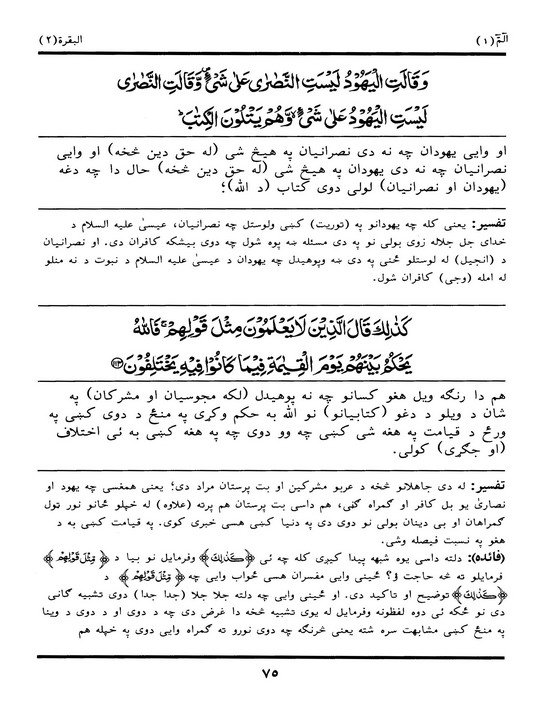 الٓمّٓ (١)
البقرة (٢)
وَقَالَتِ الْيَهُوْدُ لَيْسَتِ النَّصٰرٰى عَلٰى شَىْءٍ وَّقَالَتِ النَّصٰرٰى
لَيْسَتِ الْيَهُوْدُ عَلٰى شَىْءٍ وَّهُمْ يَتْلُوْنَ الْكِتٰبَ ؕ
او وایی یهودان چه نه دی نصرانیان په هیڅ شی (له حق دین څخه) او وایی
نصرانیان چه نه دی یهودان په هیڅ شی (له حق دین څخه) حال دا چه دغه
(یهودان او نصرانیان) لولی دوی کتاب (د الله)؛
تفسیر: یعنی کله چه یهودانو په (توریت) کښی ولوستل چه نصرانیان، عیسیٰ علیه السلام د
خدای جل جلاله زوی بولی نو په دی مسئله ښه پوه شول چه دوی بیشکه کافران دی. او نصرانیان
د (انجیل) له لوستلو ځنی په دی ښه وپوهیدل چه یهودان د عیسیٰ علیه السلام د نبوت د نه منلو
له امله (وجی) کافران شول.
كَذٰلِكَ قَالَ الَّذِيْنَ لَا يَعْلَمُوْنَ مِثْلَ قَوْلِهِمْ ۚ فَاللّٰهُ
يَحْكُمُ بَيْنَهُمْ يَوْمَ الْقِيٰمَةِ فِيْمَا كَانُوْا فِيْهِ يَخْتَلِفُوْنَ ﴿١١٣﴾
هم دا رنګه ویل هغو کسانو چه نه پوهیدل (لکه مجوسیان او مشرکان) په
شان د ویلو د دغو (کتابیانو) نو الله به حکم وکړی په منځ د دوی کښی په
ورځ د قیامت په هغه شی کښی چه وو دوی چه په هغه کښی به ئی اختلاف
(او جګړی) کولی.
تفسیر: له دی جاهلانو څخه د عربو مشرکین او بت پرستان مراد دی؛ یعنی همغسی چه یهود او
نصاریٰ یو بل کافر او ګمراه ګڼی، هم داسی بت پرستان هم پرته (علاوه) له خپلو ځانو نور ټول
ګمراهان او بی دینان بولی نو دوی دی په دنیا کښی هسی خبری کوی. په قیامت کښی به د
هغو په نسبت فیصله وشی.
(فائده): دلته داسی یوه شبهه پیدا کیږی کله چه ئی ﴿كَذٰلِكَ﴾ وفرمایل نو بیا د ﴿مِثْلَ قَوْلِهِمْ﴾
فرمایلو ته څه حاجت ؤ؟ ځینی وایی مفسران هسی ځواب وایی چه ﴿مِثْلَ قَوْلِهِمْ﴾ د
﴿كَذٰلِكَ﴾ توضیح او تاکید دی. او ځینی وایی چه دلته جلا جلا (جدا جدا) دوی تشبیه ګانی
دی نو ځکه ئی دوه لفظونه وفرمایل له یوی تشبیه څخه دا غرض دی چه د دوی او د دوی د وینا
په منځ کښی مشابهت سره شته یعنی څرنګه چه دوی نورو ته ګمراه وایی دوی په خپله هم
٧٥